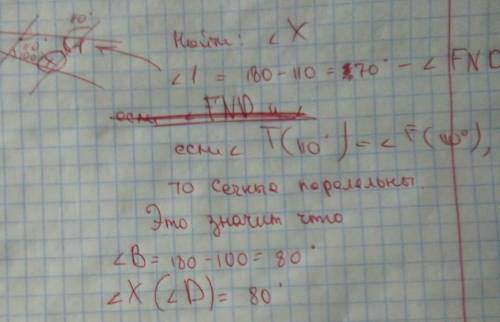 Найти: ∠X
∠1 = 180 - 110 = 70° - ∠ FND
если ∠ FND и ∠
если ∠ T(110°) = ∠ F(110°),
то сечные паралельны.
Это значит что
∠B = 180 - 100 = 80°
∠X (∠D) = 80°